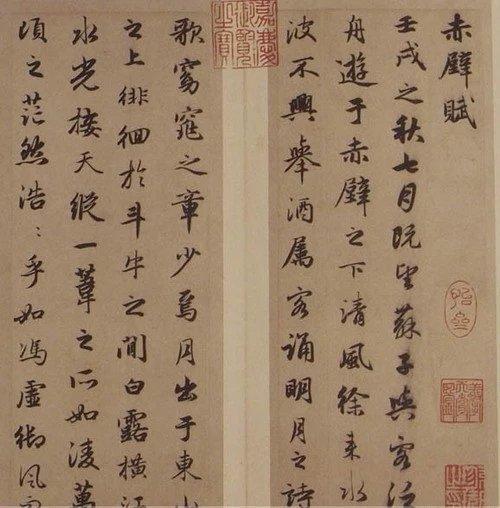 赤壁賦
壬戌之秋七月既望蘇子與客泛
舟遊于赤壁之下清風徐來水
波不興舉酒屬客誦明月之詩
嘉慶御覽之寶
歌窈窕之章少焉月出于東山
之上徘徊於斗牛之間白露橫江
水光接天縱一葦之所如凌萬
頃之茫然浩〻乎如馮虛御風而